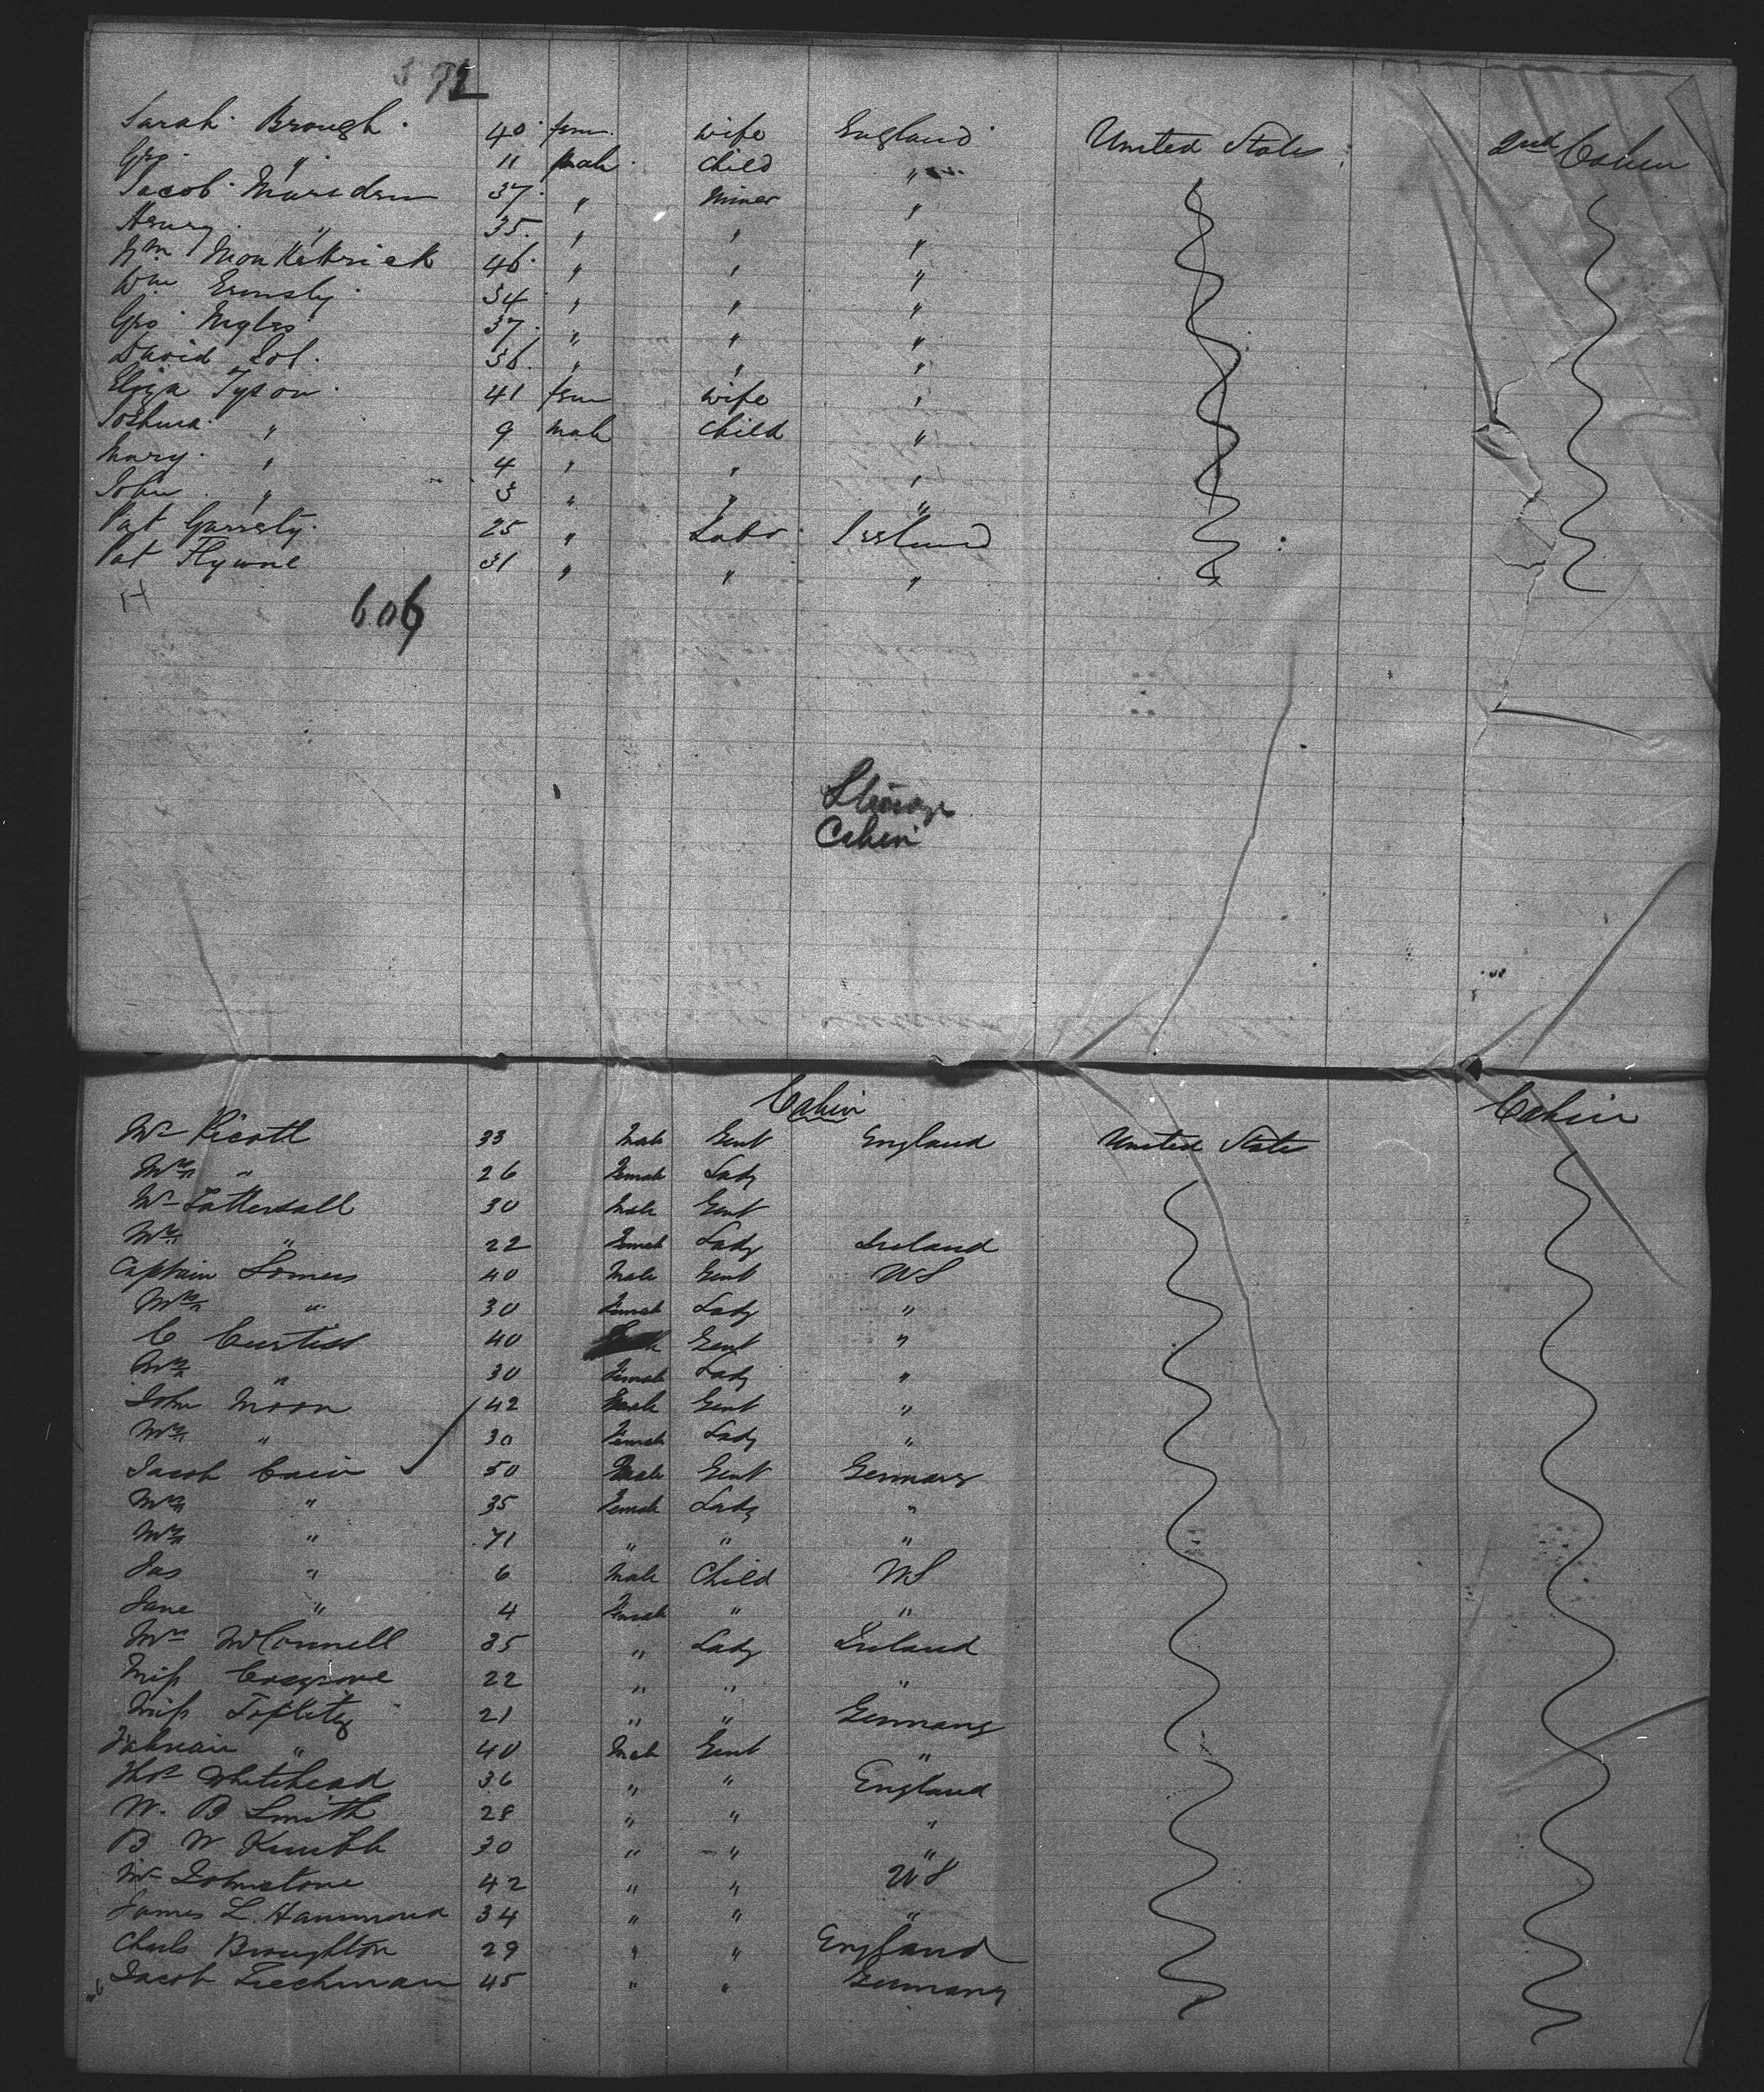 592
Sarah Brough 40 fem wife England United States 2nd Cabin
Geo " 11 male child "
Jacob Marsden 37 " Miner "
Henry " 35 " " "
Wm 46 " " "
Wm 34 " " "
Geo 37 " " "
David 36 " " "
Eliza Tyson 41 fem wife "
Joshua " 9 male child "
Mary " 4 " " "
John " 3 " " "
Pat Garrety 25 " Labr Ireland
Pat Flynne 31 " " "
606
Steerage
Cabin
Cabin Cabin
Mr Picott 33 Male Gent England United States
Mrs " 26 Female Lady
Mr Tattersall 30 Male Gent
Mrs " 22 Female Lady Ireland
Captain Somers 40 Male Gent US
Mrs " 30 Female Lady "
C Curtiss 40 Gent "
Mrs " 30 Female Lady "
John Moon 42 Male Gent "
Mrs " 30 Female Lady "
Jacob Cain 50 Male Gent Germany
Mrs " 35 Female Lady "
Mrs " 71 " " "
Jas " 6 Male Child US
Jane " 4 Female " "
Mrs McConnell 35 " Lady Ireland
Miss Cosgrove 22 " " "
Miss Toplitz 21 " " Germany
" 40 Male Gent "
Thos Whitehead 36 " " England
W. B Smith 28 " " "
B W 30 " " "
Mr Johnstone 42 " " US
James L. Hammond 34 " " "
Chals Broughton 29 " " England
Jacob Tiechman 45 " " Germany